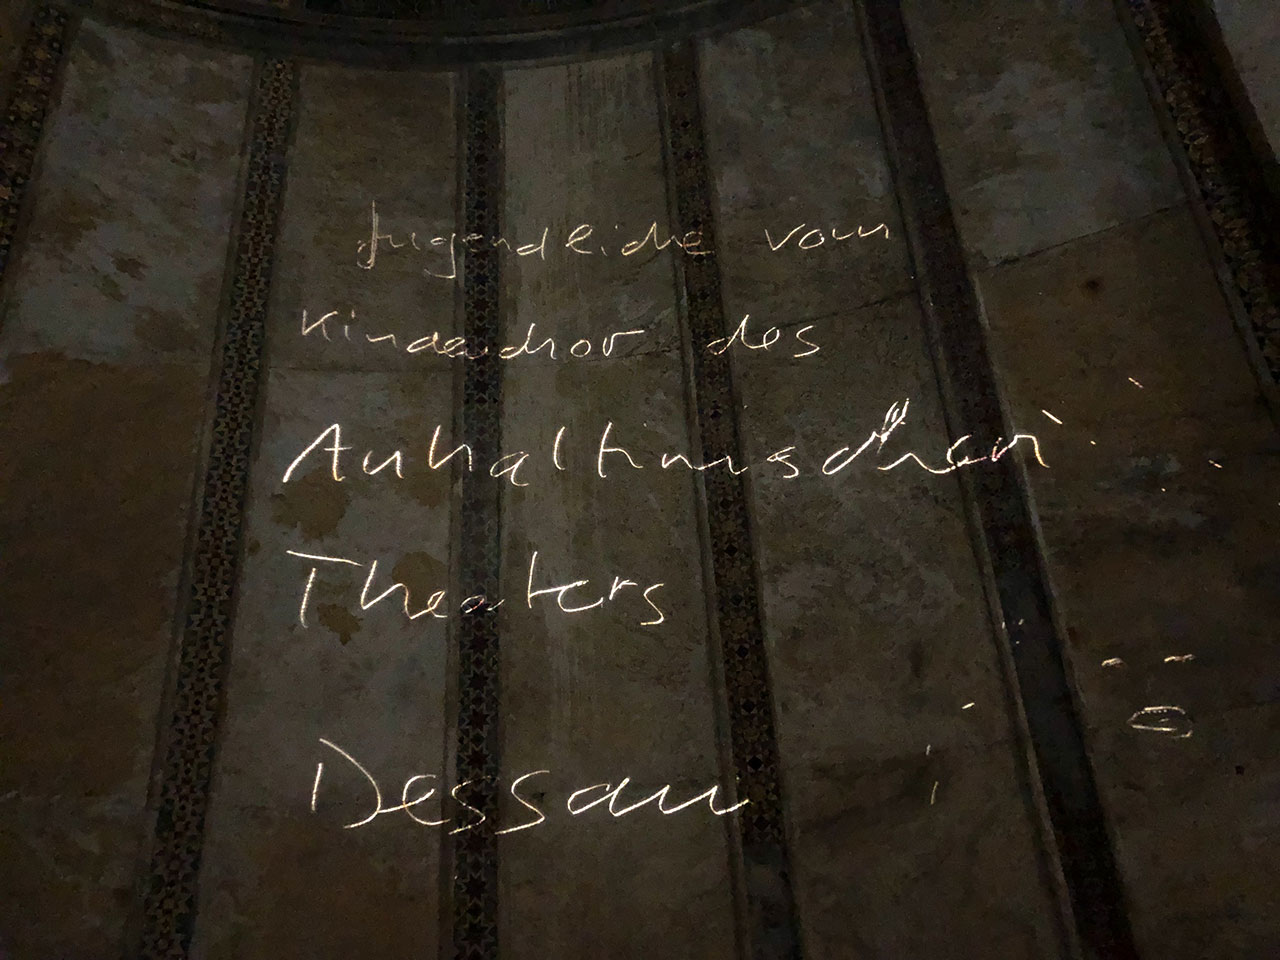 Jugendliche vom
Kinderchor des
Anhaltinischen
Theaters
Dessau